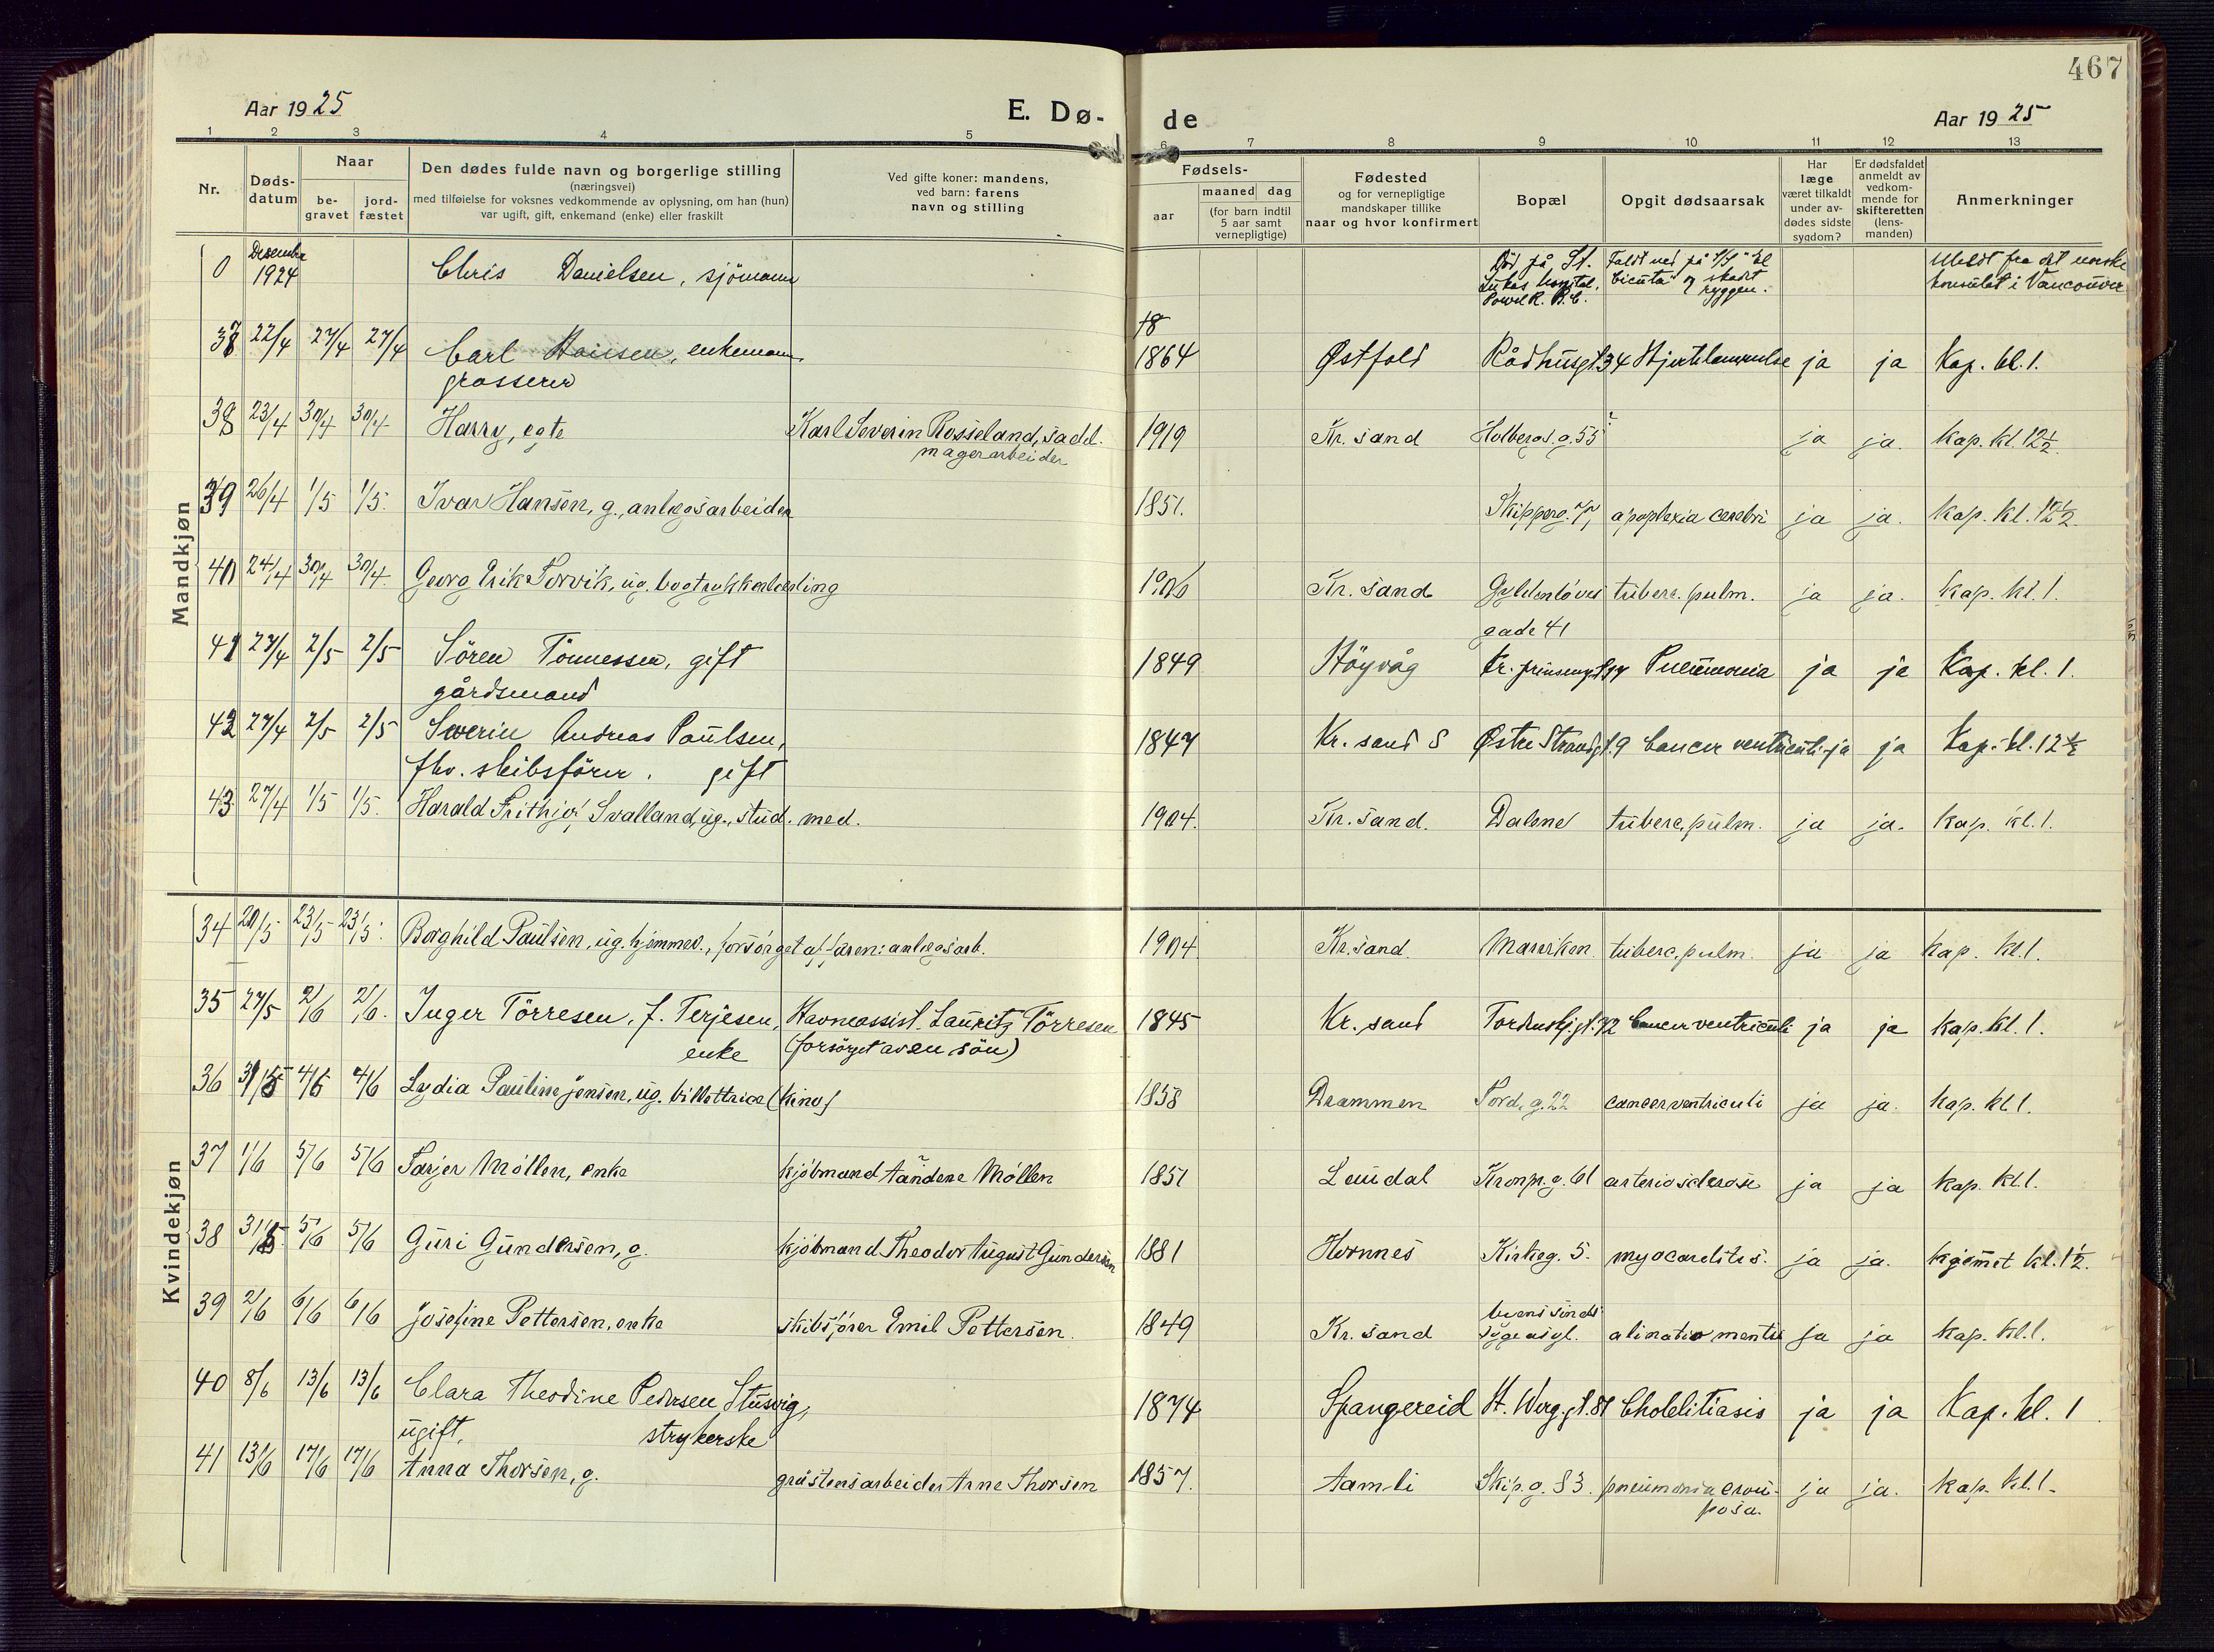 467
Aar 1925 E. Dø- de Aar 1925
1 2 3 4 5 6 7 8 9 10 11 12 13
Nr. Døds-datum Naar be-gravet jord-fæstet
Den dødes fulde navn og borgerlige stilling
(næringsvei)
med tilføielse for voksnes vedkommende av oplysning, om han (hun)
var ugift, gift, enkemand (enke) eller fraskilt
Ved gifte koner: mandens,
ved barn: farens
navn og stilling
Fødsels-
aar maaned dag
(for barn indtil
5 aar samt
vernepligtige)
Fødested
og for vernepligtige
mandskaper tillike
naar og hvor konfirmert
Bopæl
Opgit dødsaarsak
Har
læge
været tilkaldt
under av-
dødes sidste
sygdom?
Er dødsfaldet
anmeldt av
vedkom-
mende for
skifteretten
(lens-
manden)
Anmerkninger
Mandkjøn
0 Desember 1924 Chris Danielsen, sjömann Död på St. Lukas hospital, Powel R. B.C. Faldt ned på S/S og skadet ryggen. Meldt fra det norske konsulat i Vancouver
37 22/4 27/4 27/4 Carl Hansen, enkemann 1864 Østfold Rådhusgt. 34 Hjertelammelse ja ja Kap. kl. 1.
grosserer
38 23/4 30/4 30/4 Harry, egte Karl Severin Rosseland, sadel- 1919 Kr. sand Holbergs g. 55 ? ja ja. Kap. kl. 12 1/2
magerarbeider
39 26/4 1/5 1/5. Ivar Hansen, g., anlegsarbeider 1851. Skipperg. apoplexia cerebri ja ja. Kap. kl. 12 1/2.
40 24/4 30/4 30/4. Georg Erik Torvik, ug. bogtrykkerlærling 1906 Kr. sand Gyldenløves tuberc. pulm. ja ja. Kap. kl. 1.
gade 41
41 27/4 2/5 2/5 Sören Tönnessen, gift 1849 Höyvåg Kr. prinsensgt. Pneumonia ja ja Kap. kl. 1.
gårdsmand
42 27/4 2/5 2/5 Severin Andreas Paulsen, 1847 Kr. sand S Østre Strandgt. 9 Cancer ventriculi ja ja Kap. kl. 12 1/2
fhv. skibsförer. gift
43 27/4 1/5 1/5. Harald Frithjof Svalland, ug., stud. med. 1904. Kr. sand. Dalene tuberc. pulm. ja ja. Kap. kl. 1.
Kvindekjøn
34 20/5 23/5 23/5. Borghild Paulsen, ug. hjemmev., forsörget af faren: anlegsarb. 1904 Kr. sand. Marviken tuberc. pulm. ja ja Kap. kl. 1.
35 27/5 2/6 2/6. Inger Törresen, f. Terjesen, Havneassist. Lauritz Törresen 1845 Kr. sand Tordenskj.gt. 72 Cancer ventriculi ja ja Kap. kl. 1.
enke (forsörget av en sön)
36 31/5 4/6 4/6 Lydia Pauline Jensen, ug. billettrice (Kino) 1858 Drammen Tord. g. 22 cancer ventriculi ja ja. Kap. kl. 1.
37 1/6 5/6 5/6 Tarjer Möllen, enke kjöbmand Aandene Möllen 1851 Laudal Kronpr. g. 61 arteriosclerose ja ja Kap. kl. 1.
38 31/5 5/6 5/6 Guri Gundersen, g. kjöbmand Theodor August Gundersen 1881 Hornnes Kirkeg. 5. myocarditis. ja ja. Hjemmet kl. 1 1/2.
39 2/6 6/6 6/6 Josefine Pettersen, enke skibsförer Emil Pettersen. 1849 Kr. sand byens sinds- alinatio mentis ja ja Kap. kl. 1.
sygeasyl.
40 8/6 13/6 13/6 Clara Theodine Pedersen Stusvig, 1874 Spangereid H. Werg. gt. 81 Cholelitiasis ja ja Kap. kl. 1
ugift, strykerske
41 13/6 17/6 17/6 Anna Thorsen, g. gråstensarbeider Arne Thorsen 1857. Aamli Skip. g. 83. pneumonia crou- ja ja. Kap. kl. 1.
posa.